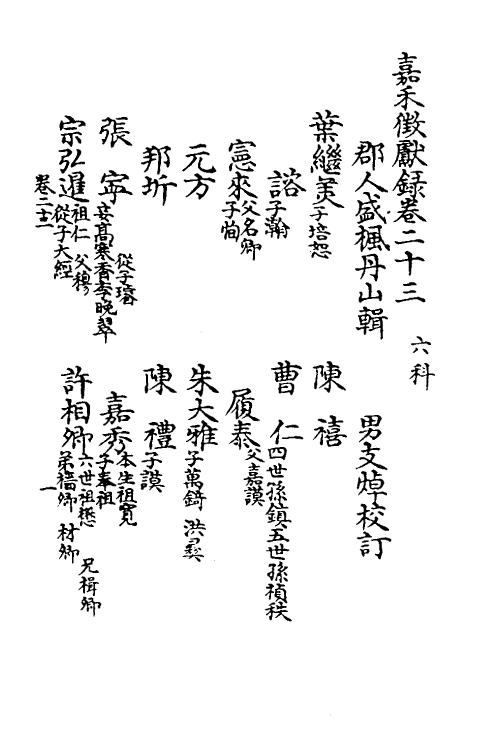 嘉禾徵獻録卷二十三
六科
郡人盛楓丹山輯
男支焯校訂
葉繼美 子培恕
陳禧
諮 子瀚
曹仁 四世孫鎮 五世孫禎秩
憲來 父名卿 子恂
履泰 父嘉謨
元方
朱大雅 子萬錡 洪彛
邦圻
陳禮 子謨
張寧 從子璿 安髙寒香李晚翠
嘉秀 本生祖寛 子奉祖
宗弘暹 祖仁 父穆 從子大經
許相卿 六世祖懋 兄楫卿 弟檣卿 材卿
卷二十三
一